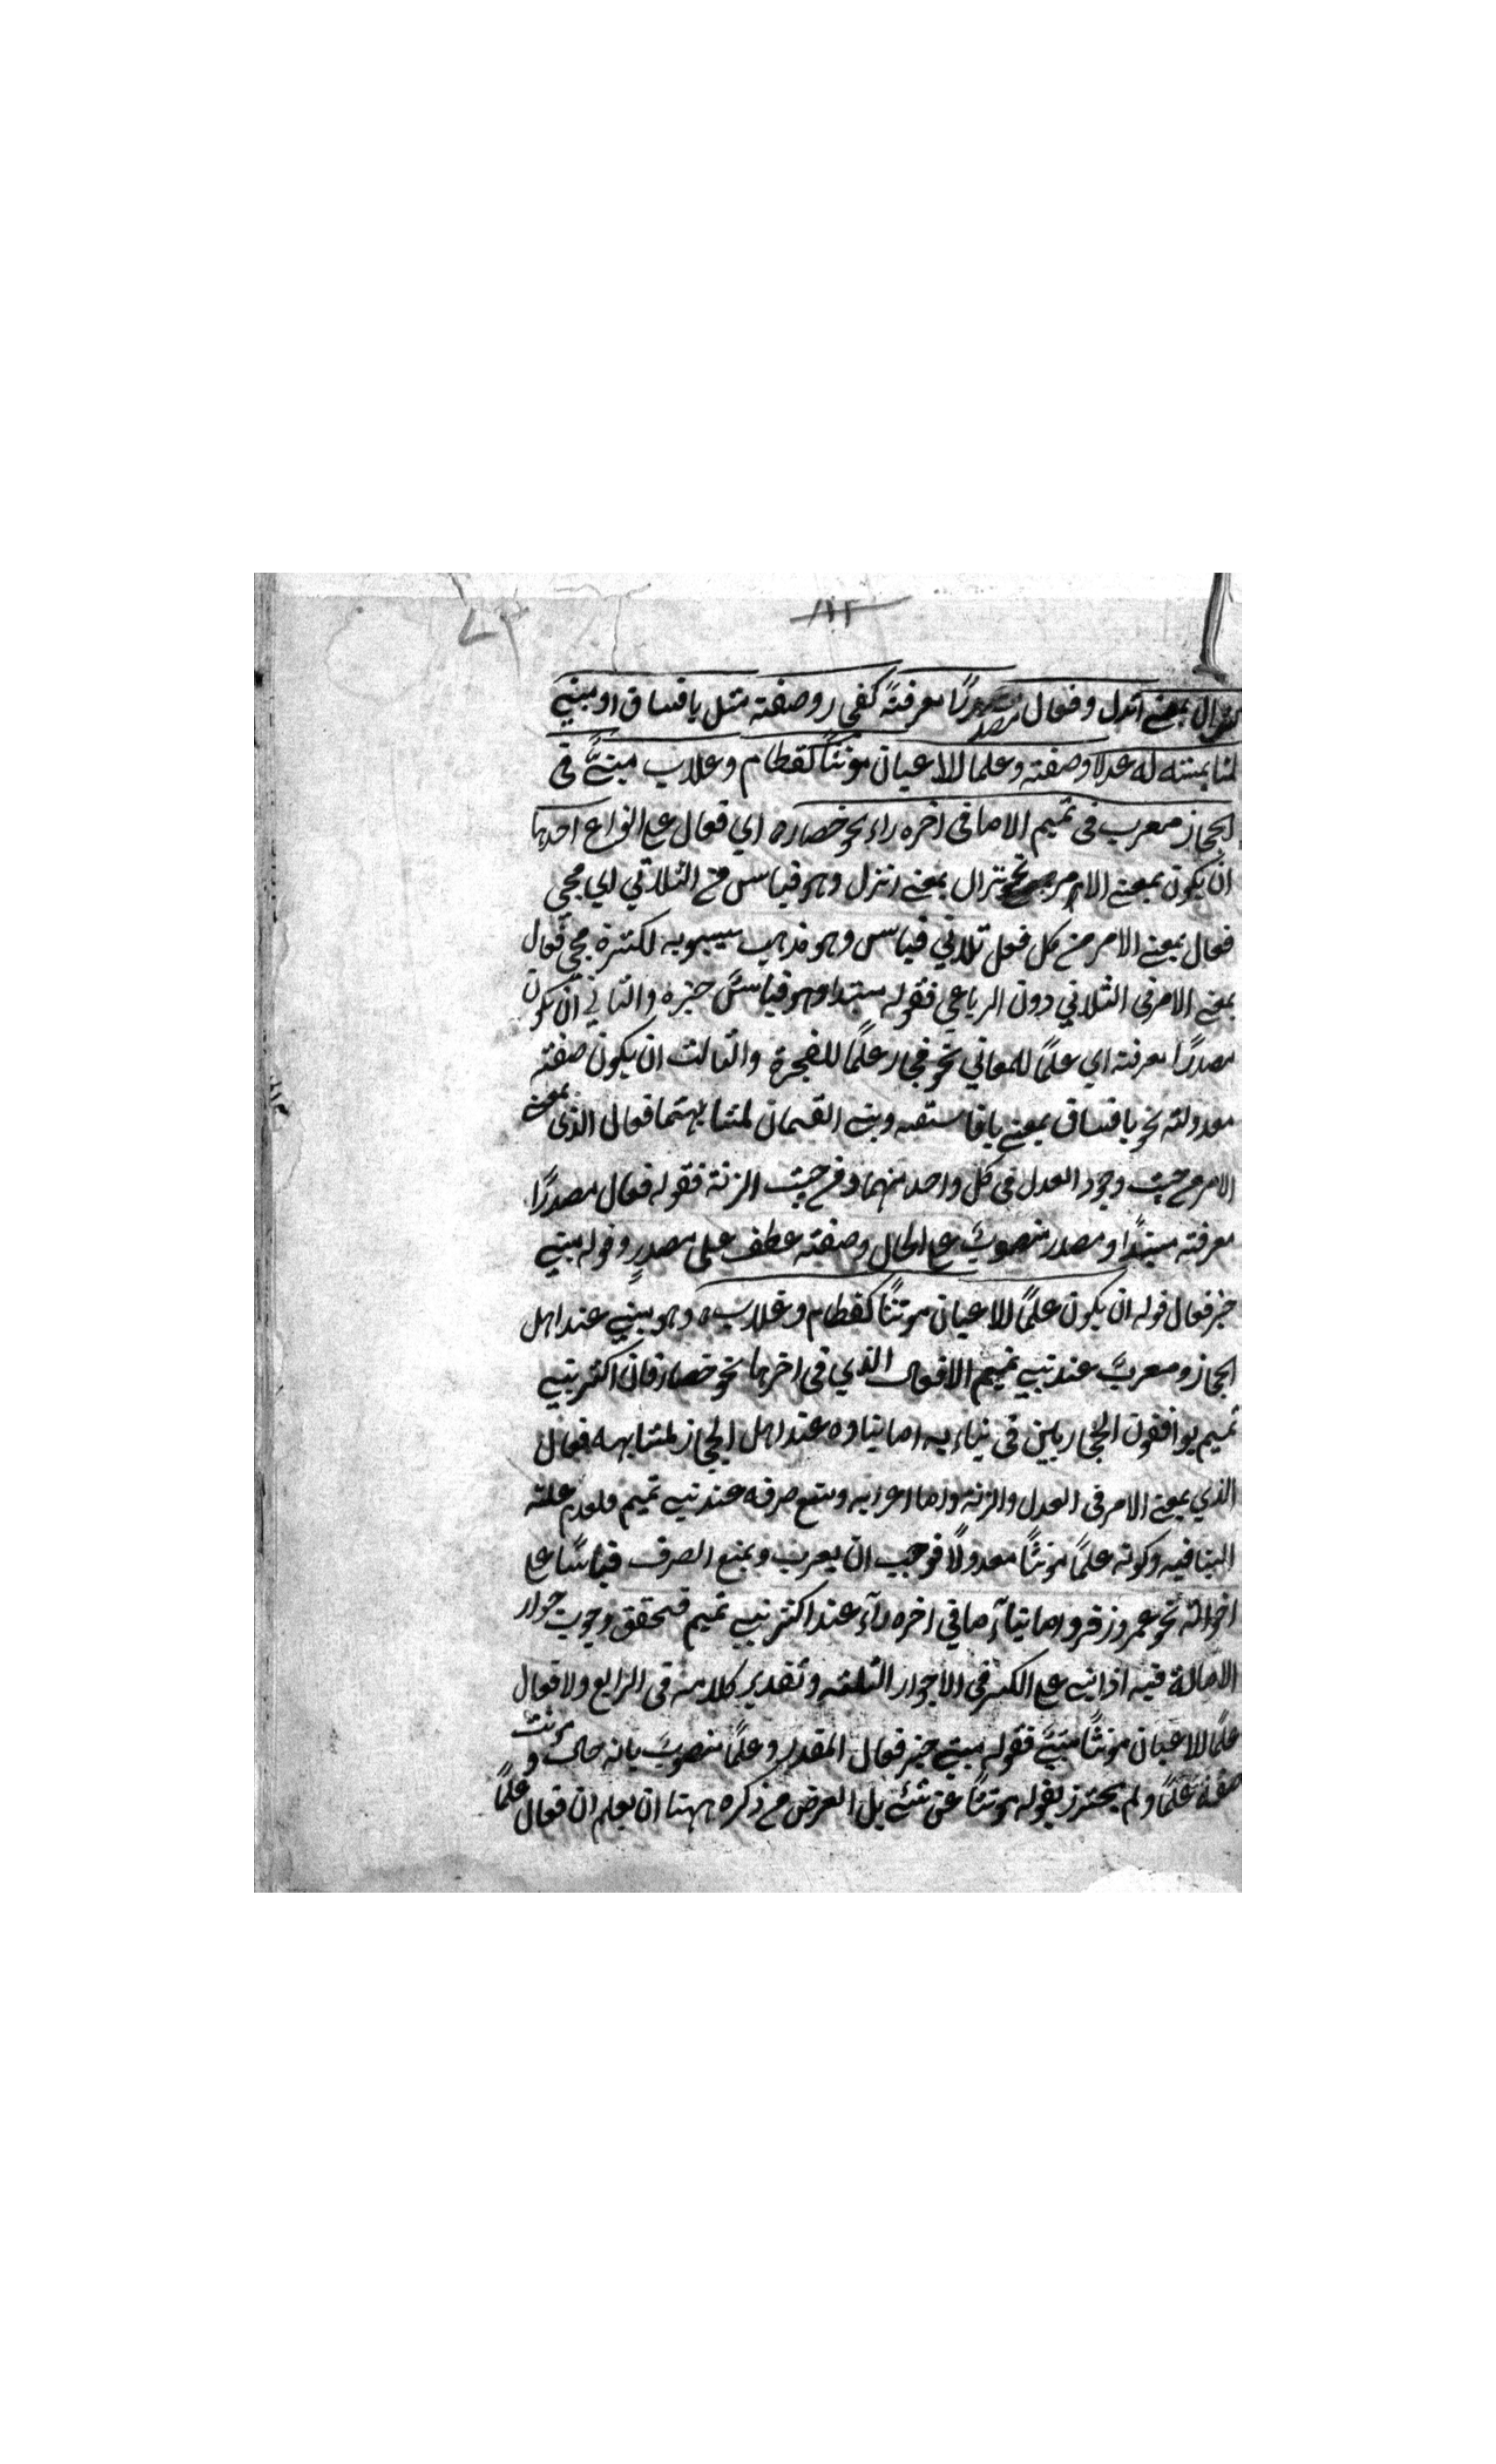 ١١٢
٧٢
نزال بمعنى انزل وفعال مصدرًا معرفةً كفجار وصفته مثل يا فساق او مبني
لمشابهته له عدلا وصفته وعلما للاعيان مونثًا كقطام وغلاب مبنيٌّ في
الحجاز معرب في تميم الا ما في اخره راء نحو حضار ه اي فعال على انواع احدها
ان يكون بمعنى الامر نحو نزال بمعنى انزل وهو قياس من الثلاثي اي مجي
فعال بمعنى الامر من كل فعل ثلاثي قياس وهو مذهب سيبويه لكثرة مجي فعال
بمعنى الامر في الثلاثي دون الرباعي فقوله مبتدا وهو قياسٌ خبره والثاني ان يكون
مصدرًا معرفته اي علمًا للمعاني نحو فجار علمًا للفجرة والثالث ان يكون صفته
معدولته نحو يا فساق بمعنى يا فاسقه وبني القسمان لمشابهتهما فعال الذي بمعنى
الامر من حيث وجود العدل في كل واحد منهما ومن حيث الزنة فقوله فعال مصدرًا
معرفته مبتدًا ومصدر منصوبٌ على الحال وصفته عطف على مصدرٍ وقوله مبني
خبر فعال قوله ان يكون علمًا للاعيان مونثًا كقطام وغلاب ه وهو مبني عند اهل
الحجاز ومعربٌ عند بني تميم الا فعال الذي في اخرها نحو حضار فان اكثر بني
تميم يوافقون الحجازيين في بنايه اما بناوه عند اهل الحجاز لمشابهه فعال
الذي بمعنى الامر في العدل والزنة واما اعرابه ومنع صرفه عند بني تميم فلعدم علته
البنا فيه وكونه علمًا مونثًا معدولًا فوجب ان يعرب ويمنع الصرف قياسًا على
اخواته نحو عمر وزفر واما بناء ما في اخره راء عند اكثر بني تميم فتحقق وجوب جواز
الامالة فيه اذا بني على الكسر في الاجوار الثلثه وتقدير كلامه في الرابع ولا فعال
علمًا للاعيان مونثًا مبنيٌ فقوله مبني خبر فعال المقدر وعلمًا منصوبٌ بانه حال ومونث
صفة علمًا ولم يحترز بقوله مونثًا عن شئ بل الغرض من ذكره ههنا ان يعلم ان فعال علمًا